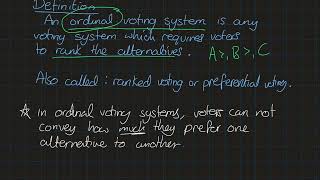 Definition
An ordinal voting system is any
voting system which requires voters
to rank the alternatives. A >, B >, C
Also called: ranked voting or preferential voting.
☆ in ordinal voting systems, voters can not
convey how much they prefer one
alternative to another.